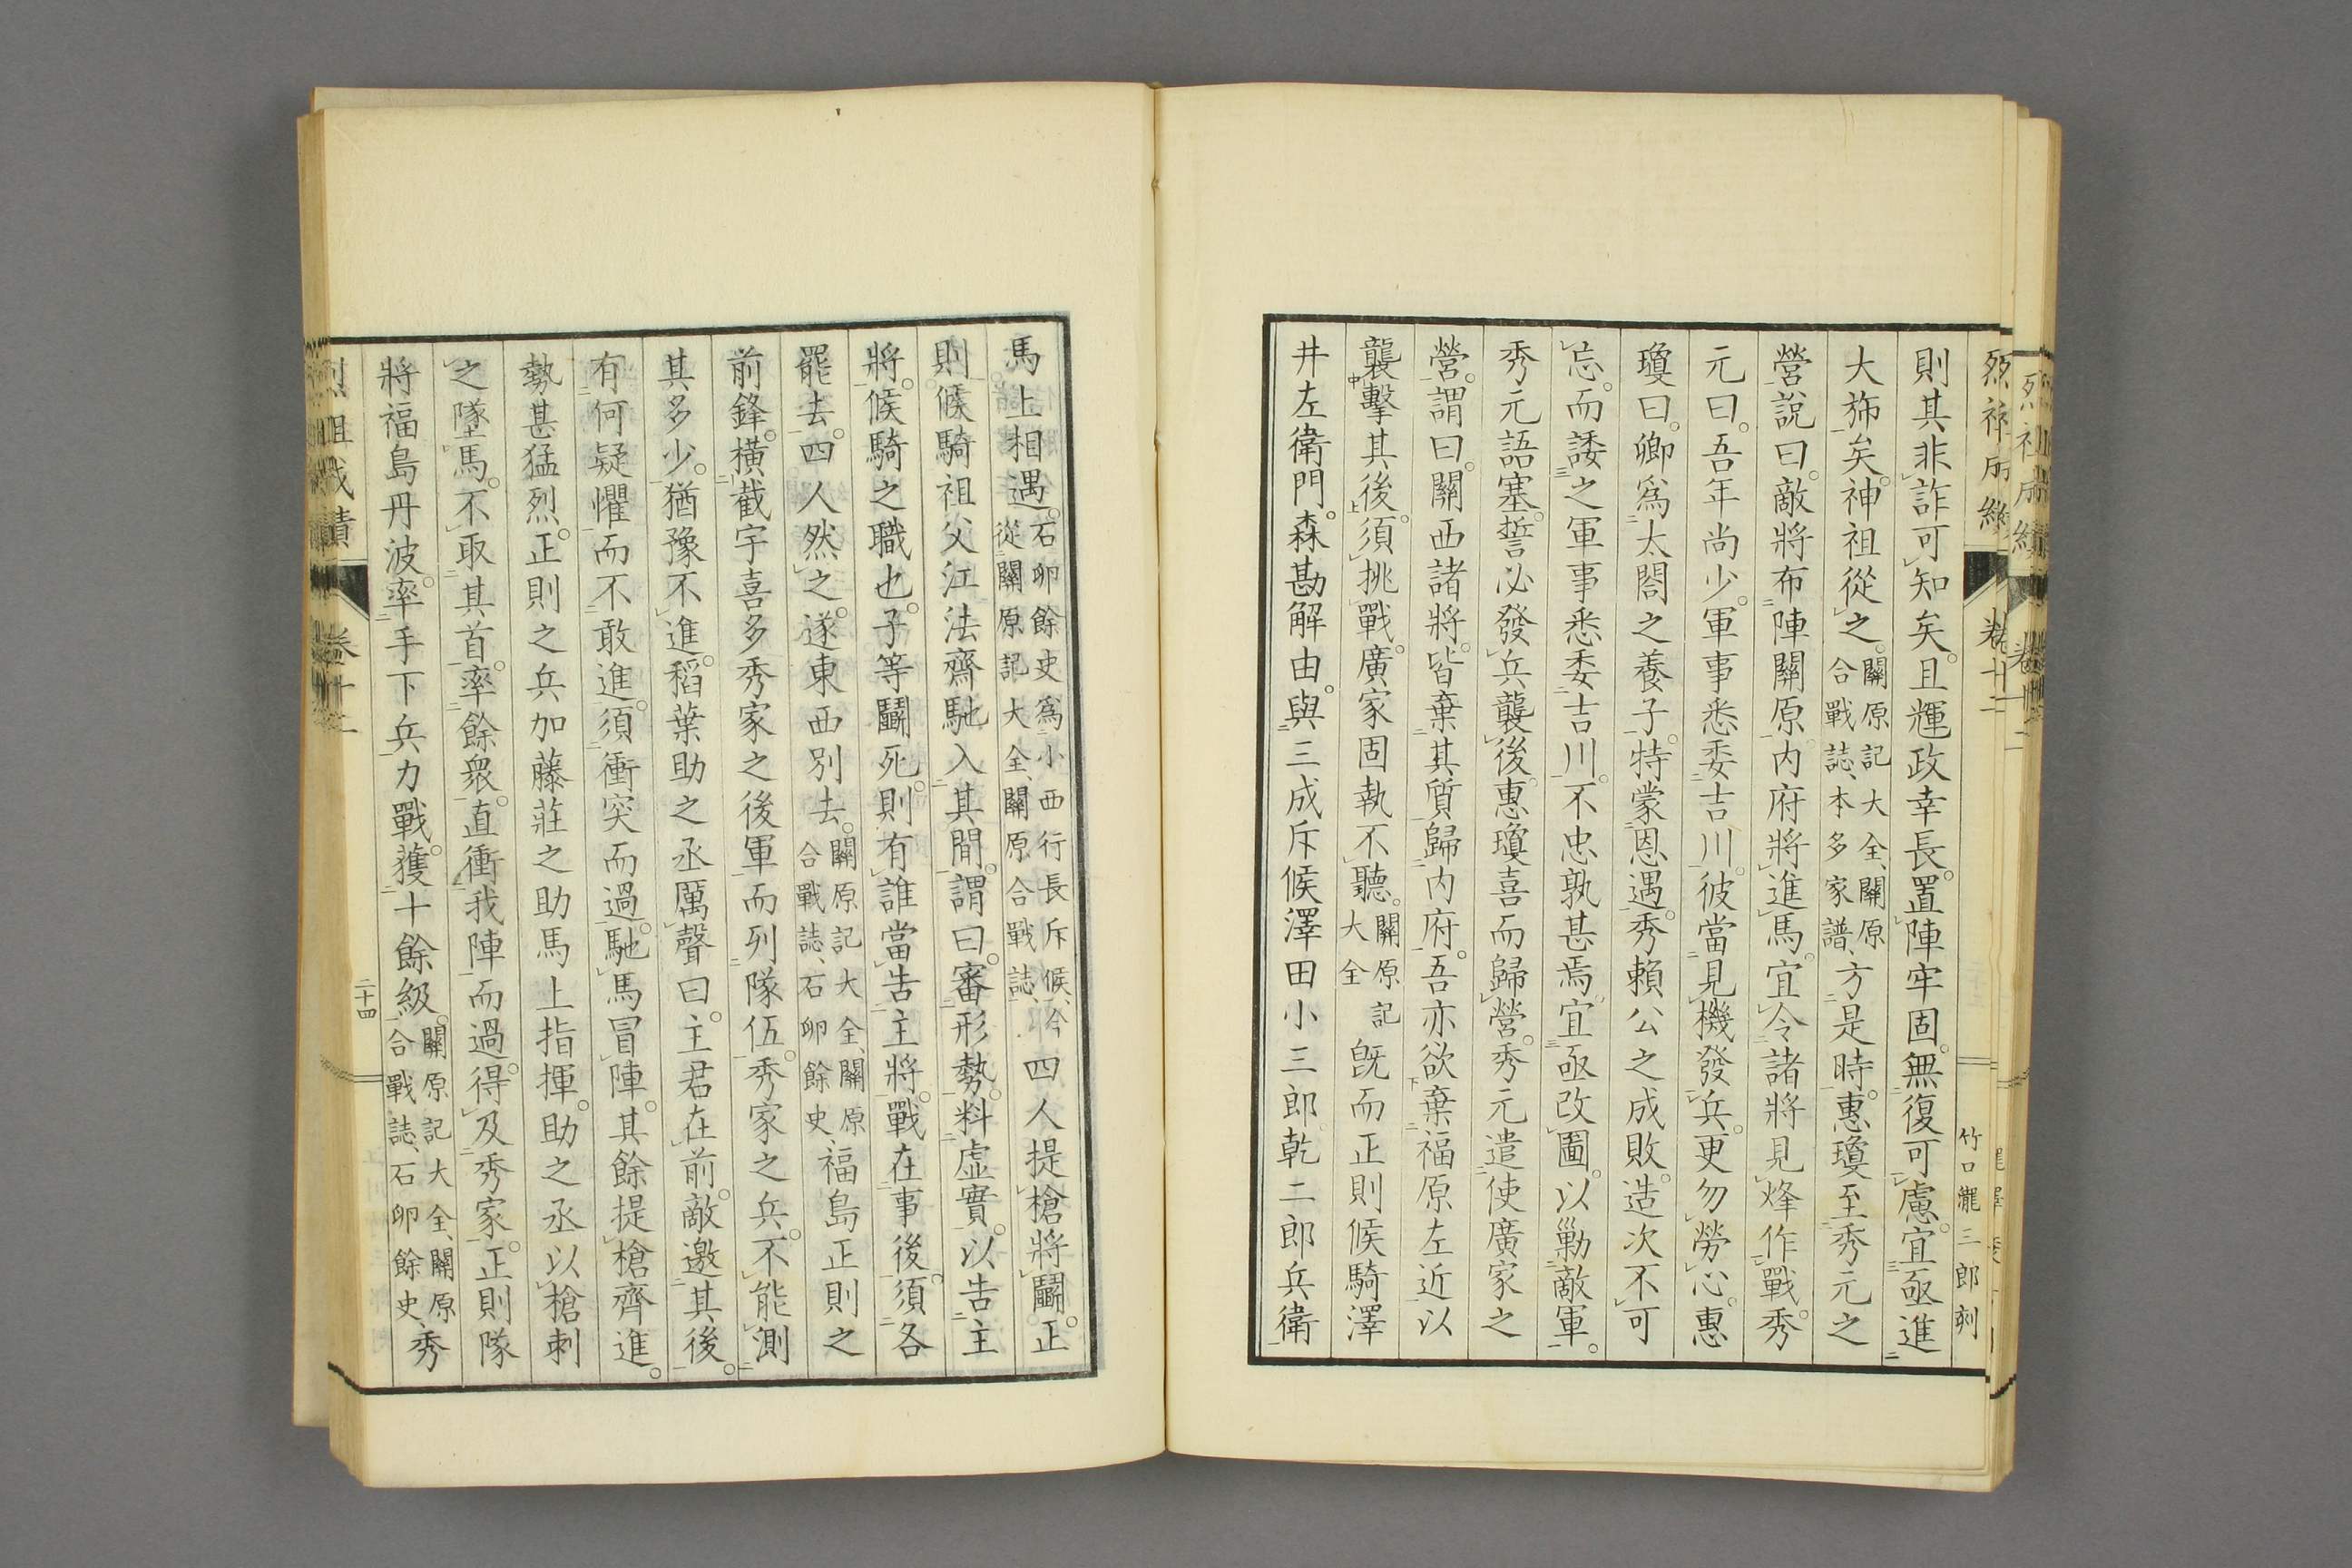 則其非詐可知矣。且輝政幸長。置陣牢固。無復可慮。宜亟進
大斾矣。神祖從之。關原記大全、關原合戰誌、本多家譜、方是時。惠瓊至秀元之
營說曰。敵將布陣關原。内府將進馬。宜令諸將見烽作戰。秀
元曰。吾年尚少。軍事悉委吉川。彼當見機發兵。更勿勞心。惠
瓊曰。卿爲太閤之養子。特蒙恩遇。秀賴公之成敗。造次不可
忘。而諉之軍事悉委吉川。不忠孰甚焉。宜亟改圖。以勦敵軍。
秀元語塞。誓必發兵襲後。惠瓊喜而歸營。秀元遣使廣家之
營。謂曰。關西諸將。皆棄其質歸内府。吾亦欲棄福原左近以
襲擊其後。須挑戰。廣家固執不聽。關原記大全 既而正則候騎澤
井左衛門。森勘解由。與三成斥候澤田小三郎乾二郎兵衛
竹口瀧三郎刻
馬上相遇。石卵餘史爲小西行長斥候、今從關原記大全、關原合戰誌、四人提槍將鬭。正
則候騎祖父江法齋馳入其間。謂曰。審形勢。料虛實。以告主
將。候騎之職也。子等鬭死。則有誰當告主將。戰在事後。須各
罷去。四人然之。遂東西別去。關原記大全、關原合戰誌、石卵餘史、福島正則之
前鋒。橫截宇喜多秀家之後軍而列隊伍。秀家之兵。不能測
其多少。猶豫不進。稻葉助之丞厲聲曰。主君在前。敵邀其後。
有何疑懼而不敢進。須衝突而過。馳馬冒陣。其餘提槍齊進。
勢甚猛烈。正則之兵加藤莊之助馬上指揮。助之丞以槍刺
之墜馬。不取其首。率餘衆。直衝我陣而過。得及秀家。正則隊
將福島丹波。率手下兵力戰。獲十餘級。關原記大全、關原合戰誌、石卵餘史、秀
卷十二
二十四